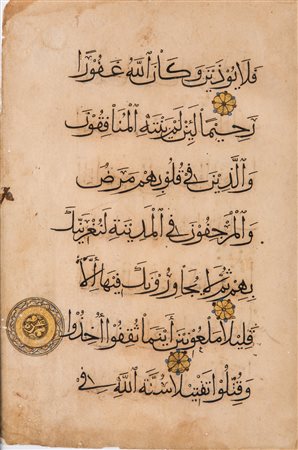 فَلَا يُؤْذَيْنَ وَكَانَ اللَّهُ غَفُورًا
رَحِيمًا لَئِنْ لَمْ يَنْتَهِ الْمُنَافِقُونَ
وَالَّذِينَ فِي قُلُوبِهِمْ مَرَضٌ
وَالْمُرْجِفُونَ فِي الْمَدِينَةِ لَنُغْرِيَنَّكَ
بِهِمْ ثُمَّ لَا يُجَاوِرُونَكَ فِيهَا إِلَّا
قَلِيلًا مَلْعُونِينَ أَيْنَمَا ثُقِفُوا أُخِذُوا
وَقُتِّلُوا تَقْتِيلًا سُنَّةَ اللَّهِ فِي